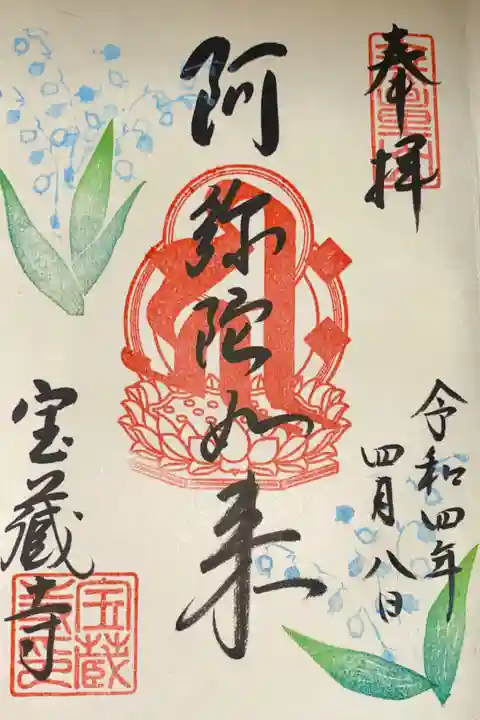 奉拝
令和四年
四月八日
阿弥陀如来
宝蔵寺